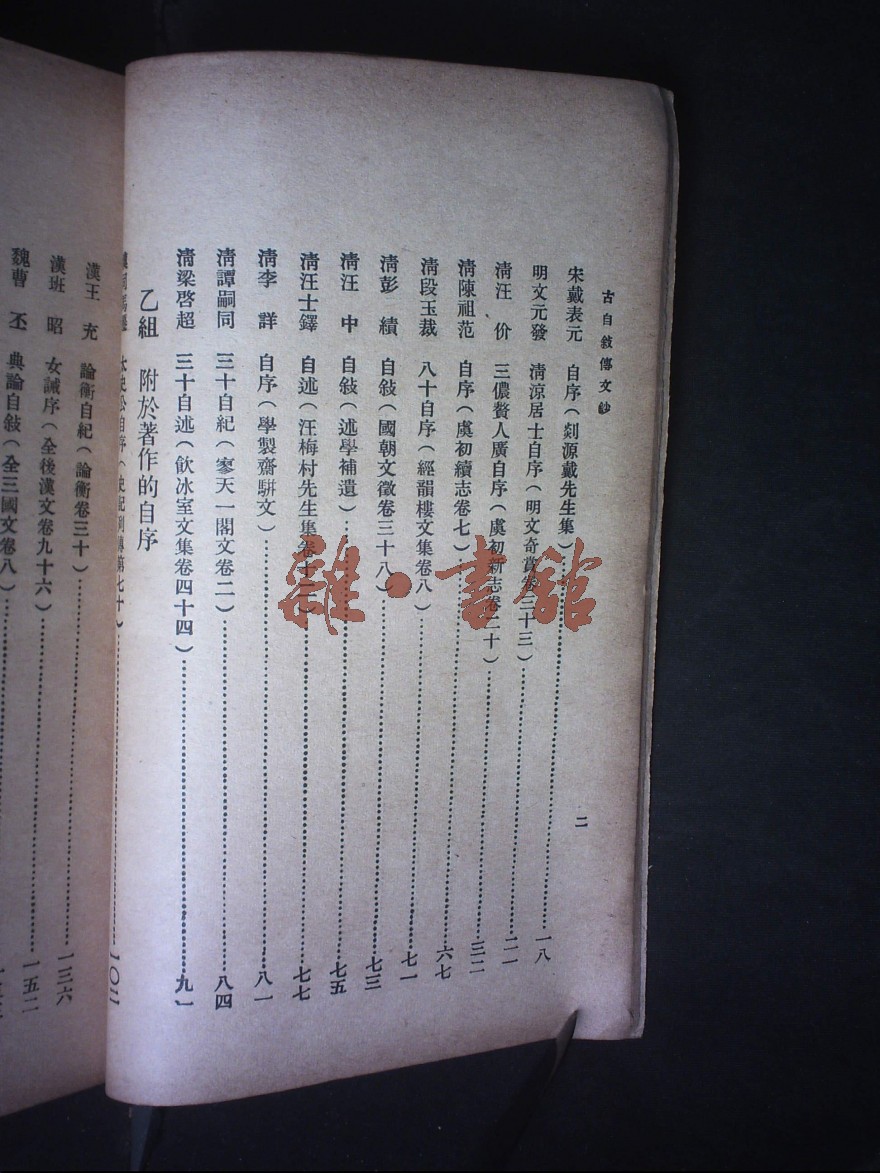 古自敍傳文鈔
二
宋戴表元 自序（剡源戴先生集）一八
明文元發 清涼居士自序（明文奇賞卷三十三）二一
清汪价 三儂贅人廣自序（虞初新志卷二十）三二
清陳祖范 自序（虞初續志卷七）六七
清段玉裁 八十自序（經韻樓文集卷八）七一
清彭績 自敍（國朝文徵卷三十八）七三
清汪中 自敍（述學補遺）七五
清汪士鐸 自述（汪梅村先生集卷十二）七七
清李詳 自序（學製齋駢文）八一
清譚嗣同 三十自紀（寥天一閣文卷二）八四
清梁啓超 三十自述（飲冰室文集卷四十四）九一
乙組 附於著作的自序
漢司馬遷 太史公自序（史記列傳第七十）一〇二
漢王充 論衡自紀（論衡卷三十）一三六
漢班昭 女誡序（全後漢文卷九十六）一五二
魏曹丕 典論自敍（全三國文卷八）
雜·書館